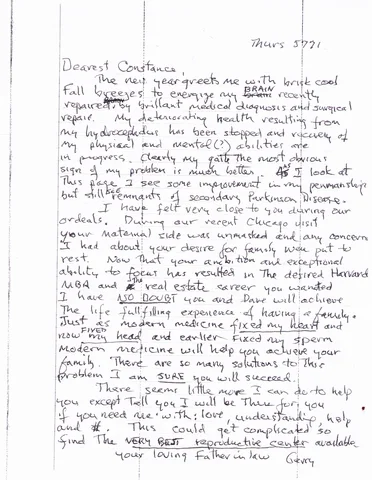 Thurs 5771
Dearest Constance,
The new year greets me with brisk cool
Fall breezes to energize my BRAIN recently
repaired by brilliant medical diagnosis and surgical
repair. My deteriorating health resulting from
my hydrocephus has been stopped and recovery of
my physical and mental(?) abilities are
in progress. Clearly my gait the most obvious
sign of my problem is much better. As I look at
this page I see some improvement in my penmanship
but still see remnants of secondary Parkinson Disease.
I have felt very close to you during our
ordeals. During our recent Chicago visit
your maternal side was unmarked and any concern
I had about your desire for family was put to
rest. Now that your ambition and exceptional
ability to focus has resulted in the desired Harvard
MBA and the real estate career you wanted
I have NO DOUBT you and Dave will achieve
The life fulfilling experience of having a family.
Just as modern medicine fixed my heart and
now FIXED my head and earlier fixed my sperm
modern medicine will help you achieve your
family. There are so many solutions to this
problem I am SURE you will succeed.
There seems little more I can do to help
you except tell you I will be there for you
if you need me with; love, understanding, help
and $. This could get complicated so
find the VERY BEST reproductive center available
your loving Father in law Gerry